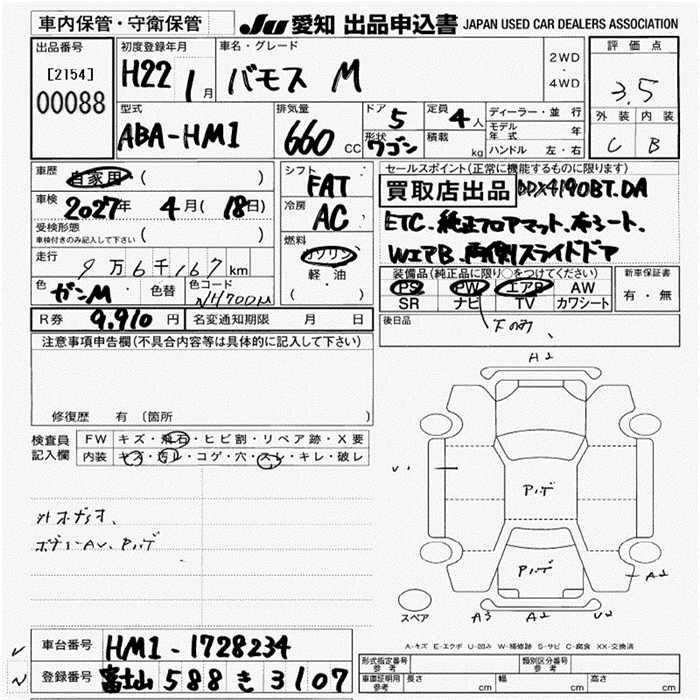 車内保管・守衛保管
JU 愛知 出品申込書 JAPAN USED CAR DEALERS ASSOCIATION
出品番号
[2154]
00088
初度登録年月
H22 1月
車名・グレード
バモス M
2WD
・
4WD
評価点
3.5
外装 内装
C B
型式
ABA-HM1
排気量
660 CC
ドア 5
形状 ワゴン
定員 4人
積載 kg
ディーラー・並行
モデル年式 年
ハンドル 左・右
車歴 自家用 ( )
車検 2027年 4月(18日)
受検形態
車検付きのみ記入して下さい ( )
走行 9万6千167km
色 ガンM 色替 色コード NH700M
シフト
FAT
冷房
AC
燃料
ガソリン
軽・油
( ・ )
セールスポイント(正常に機能するものに限ります)
買取店出品 DDX4190BT.DA
ETC.純正フロアマット.布シート.
WエアB.両側スライドドア
装備品(純正品に限り○をつけてください)
PS PW エアB AW
SR ナビ TV カワシート
新車保証書
有・無
R券 9,910円 名変通知期限 月 日
後日品
下のみ
注意事項申告欄(不具合内容等は具体的に記入して下さい)
修復歴 有 〔箇所
検査員
記入欄
FW キズ・飛石・ヒビ割・リペア跡・X要
内装 キズ・汚レ・コゲ・穴・スレ・キレ・破レ
外
ボデーAU、Pハゲ
A2
U1
Pハゲ
Pハゲ
A2
A3 A2 U2
スペア
A-キズ E-エクボ U-凹み W-補修跡 S-サビ C-腐食 XX-交換済
車台番号 HM1-1728234
登録番号 富士山 588 き 3107
形式指定番号 参考
類別区分番号 参考
車庫証明用 参考 長さ cm 幅 cm 高さ cm